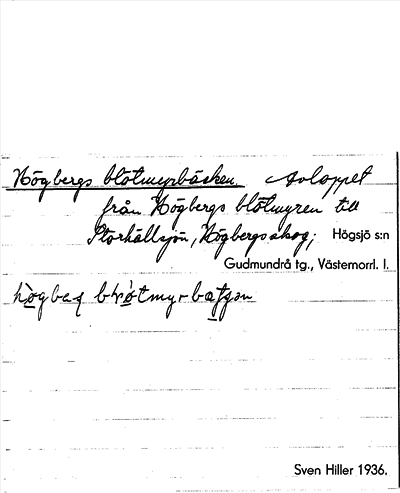 Högbergs blötmyrbäcken Avloppet
från Högbergs blötmyren till
Storhällsjön, Högbergs skog; Högsjö s:n
Gudmundrå tg., Västernorrl. l.
Sven Hiller 1936.